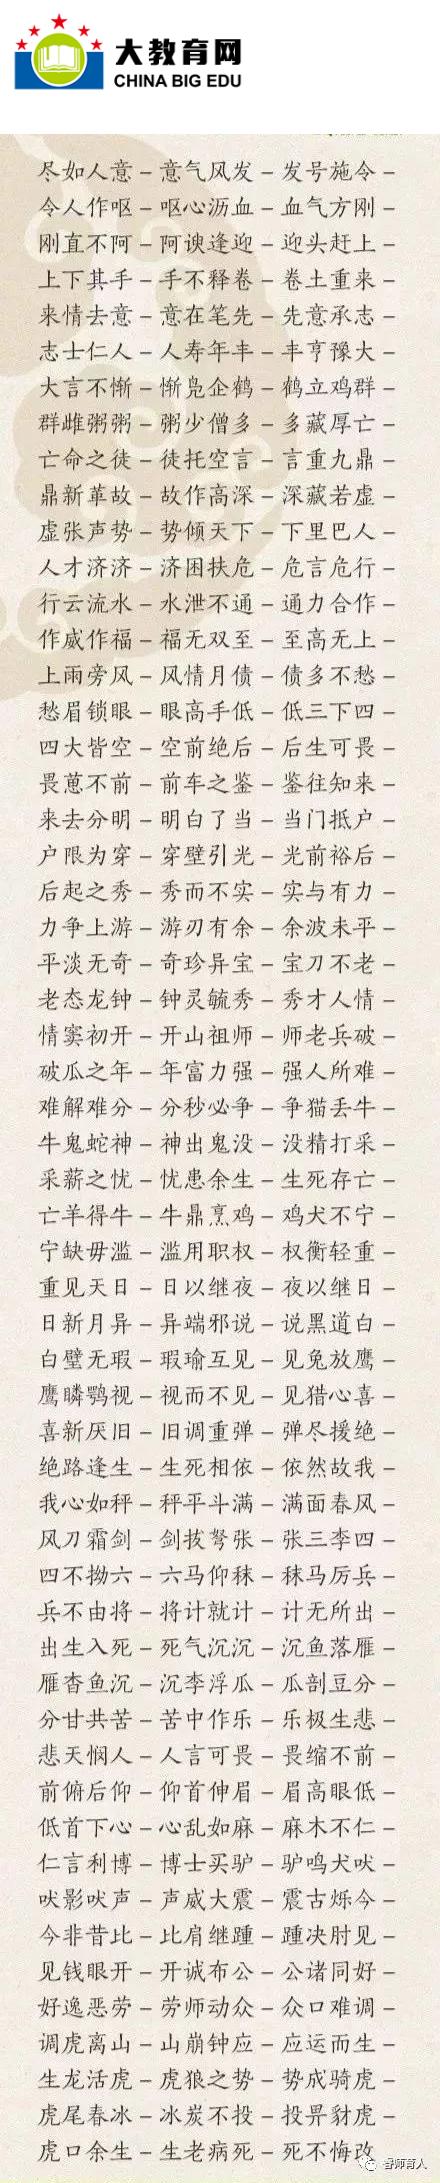 大教育网
CHINA BIG EDU
尽如人意 – 意气风发 – 发号施令 –
令人作呕 – 呕心沥血 – 血气方刚 –
刚直不阿 – 阿谀逢迎 – 迎头赶上 –
上下其手 – 手不释卷 – 卷土重来 –
来情去意 – 意在笔先 – 先意承志 –
志士仁人 – 人寿年丰 – 丰亨豫大 –
大言不惭 – 惭凫企鹤 – 鹤立鸡群 –
群雌粥粥 – 粥少僧多 – 多藏厚亡 –
亡命之徒 – 徒托空言 – 言重九鼎 –
鼎新革故 – 故作高深 – 深藏若虚 –
虚张声势 – 势倾天下 – 下里巴人 –
人才济济 – 济困扶危 – 危言危行 –
行云流水 – 水泄不通 – 通力合作 –
作威作福 – 福无双至 – 至高无上 –
上雨旁风 – 风情月债 – 债多不愁 –
愁眉锁眼 – 眼高手低 – 低三下四 –
四大皆空 – 空前绝后 – 后生可畏 –
畏葸不前 – 前车之鉴 – 鉴往知来 –
来去分明 – 明白了当 – 当门抵户 –
户限为穿 – 穿壁引光 – 光前裕后 –
后起之秀 – 秀而不实 – 实与有力 –
力争上游 – 游刃有余 – 余波未平 –
平淡无奇 – 奇珍异宝 – 宝刀不老 –
老态龙钟 – 钟灵毓秀 – 秀才人情 –
情窦初开 – 开山祖师 – 师老兵破 –
破瓜之年 – 年富力强 – 强人所难 –
难解难分 – 分秒必争 – 争猫丢牛 –
牛鬼蛇神 – 神出鬼没 – 没精打采 –
采薪之忧 – 忧患余生 – 生死存亡 –
亡羊得牛 – 牛鼎烹鸡 – 鸡犬不宁 –
宁缺毋滥 – 滥用职权 – 权衡轻重 –
重见天日 – 日以继夜 – 夜以继日 –
日新月异 – 异端邪说 – 说黑道白 –
白璧无瑕 – 瑕瑜互见 – 见兔放鹰 –
鹰瞵鹗视 – 视而不见 – 见猎心喜 –
喜新厌旧 – 旧调重弹 – 弹尽援绝 –
绝路逢生 – 生死相依 – 依然故我 –
我心如秤 – 秤平斗满 – 满面春风 –
风刀霜剑 – 剑拔弩张 – 张三李四 –
四不拗六 – 六马仰秣 – 秣马厉兵 –
兵不由将 – 将计就计 – 计无所出 –
出生入死 – 死气沉沉 – 沉鱼落雁 –
雁杳鱼沉 – 沉李浮瓜 – 瓜剖豆分 –
分甘共苦 – 苦中作乐 – 乐极生悲 –
悲天悯人 – 人言可畏 – 畏缩不前 –
前俯后仰 – 仰首伸眉 – 眉高眼低 –
低首下心 – 心乱如麻 – 麻木不仁 –
仁言利博 – 博士买驴 – 驴鸣犬吠 –
吠影吠声 – 声威大震 – 震古烁今 –
今非昔比 – 比肩继踵 – 踵决肘见 –
见钱眼开 – 开诚布公 – 公诸同好 –
好逸恶劳 – 劳师动众 – 众口难调 –
调虎离山 – 山崩钟应 – 应运而生 –
生龙活虎 – 虎狼之势 – 势成骑虎 –
虎尾春冰 – 冰炭不投 – 投畀豺虎 –
虎口余生 – 生老病死 – 死不悔改
香师育人